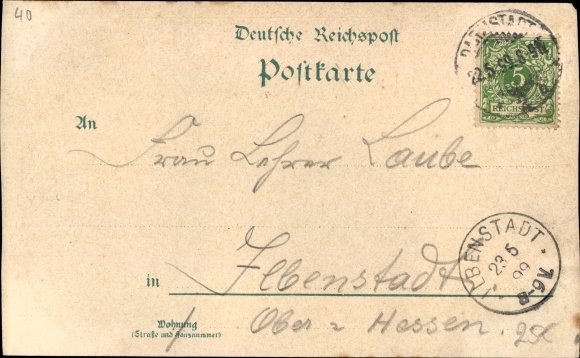 40
Deutsche Reichspost
Postkarte
DARMSTADT
22.5.99.
5
REICHSPOST
An
Frau Lehrer Laube
ILBENSTADT
23 5
99
7.6-8
in Ilbenstadt
Wohnung
(Straße und Hausnummer)
Ober = Hessen.